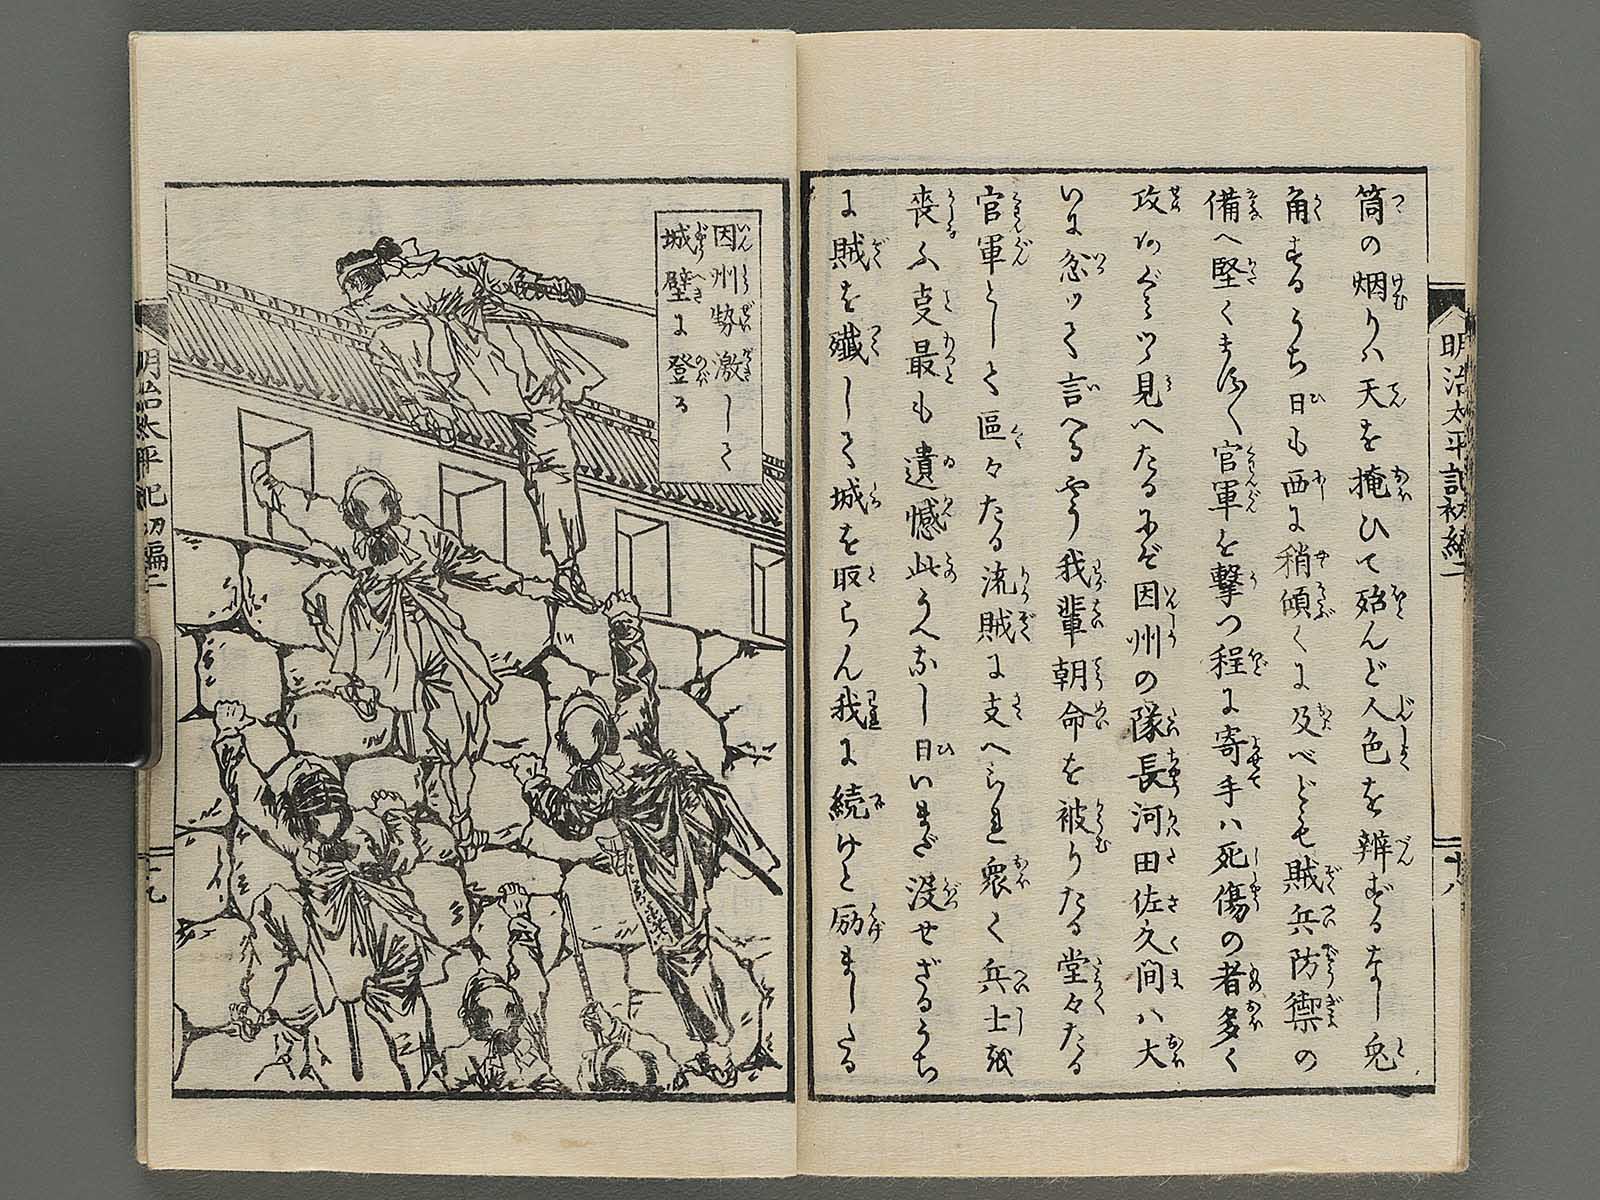 明治太平記初編二
筒の烟りハ天を掩ひて殆んど人色を辨ぜるなし兎
角するうち日も西に稍傾くに及べども賊兵防禦の
備へ堅くまた官軍を撃つ程に寄手ハ死傷の者多く
攻めぐみて見へたるにぞ因州の隊長河田佐久間ハ大
いに忿ッて言へるやう我輩朝命を被りたる堂々たる
官軍として區々たる流賊に支へられ衆く兵士を
喪ふ事最も遺憾此うへなし日いまだ没せざるうち
に賊を殲して城を取らん我に続けと励ましたる
十八
因州勢激して
城壁に登る
明治太平記初編二
十九